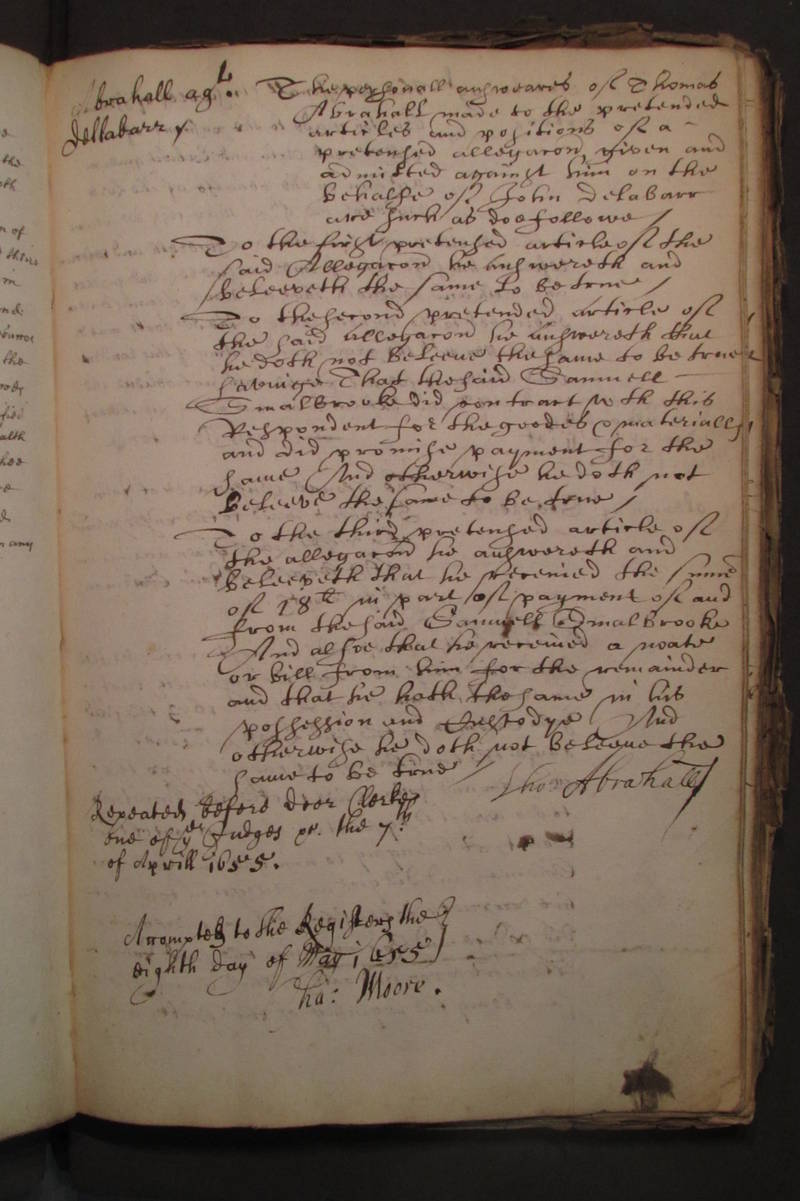 Abrahall agt.
Dellabarr
The personall answeares of Thomas
Abrahall made to the pretended
articles and positions of a
pretensed allegacon, given and
admitted against him on the
behalfe of John Delabarr
are such as doe followe /
To the first pretensed article of the
said Allegacon he answereth and
beleeveth the same to be true /
To the second pretensed article of
the said allegacon he answereth that
he doth not beleeue the same to be true
savinge That the said Samuell
Smalbrooke did contract with this
Respondent for the goodes materially
and did promise payment for the
same And otherwise he doth not
beleeve the same to be true /
To the third pretensed article of
the allegacon he answereth and
beleeveth that he receiued the summe
of 18li in part of payment of and
from the said Samuell Smalbrooke
And alsoe that he receiued a noate
or bill from him for the remainder
and that he hath the same in his
possession and Custodye And
otherwise he doth not beleeue the
same to be true /
Tho: Abrahall
Repeated before door Clerke
one of ye Judges the 7th
of Aprill 1655.
to the Registery the
eighth day of May 1655
Moore.
the
of
the
any